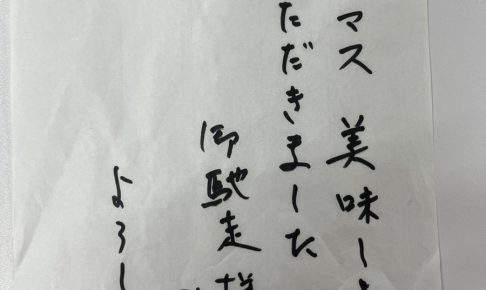 マス 美味し
ただきました
御馳走様
よろし